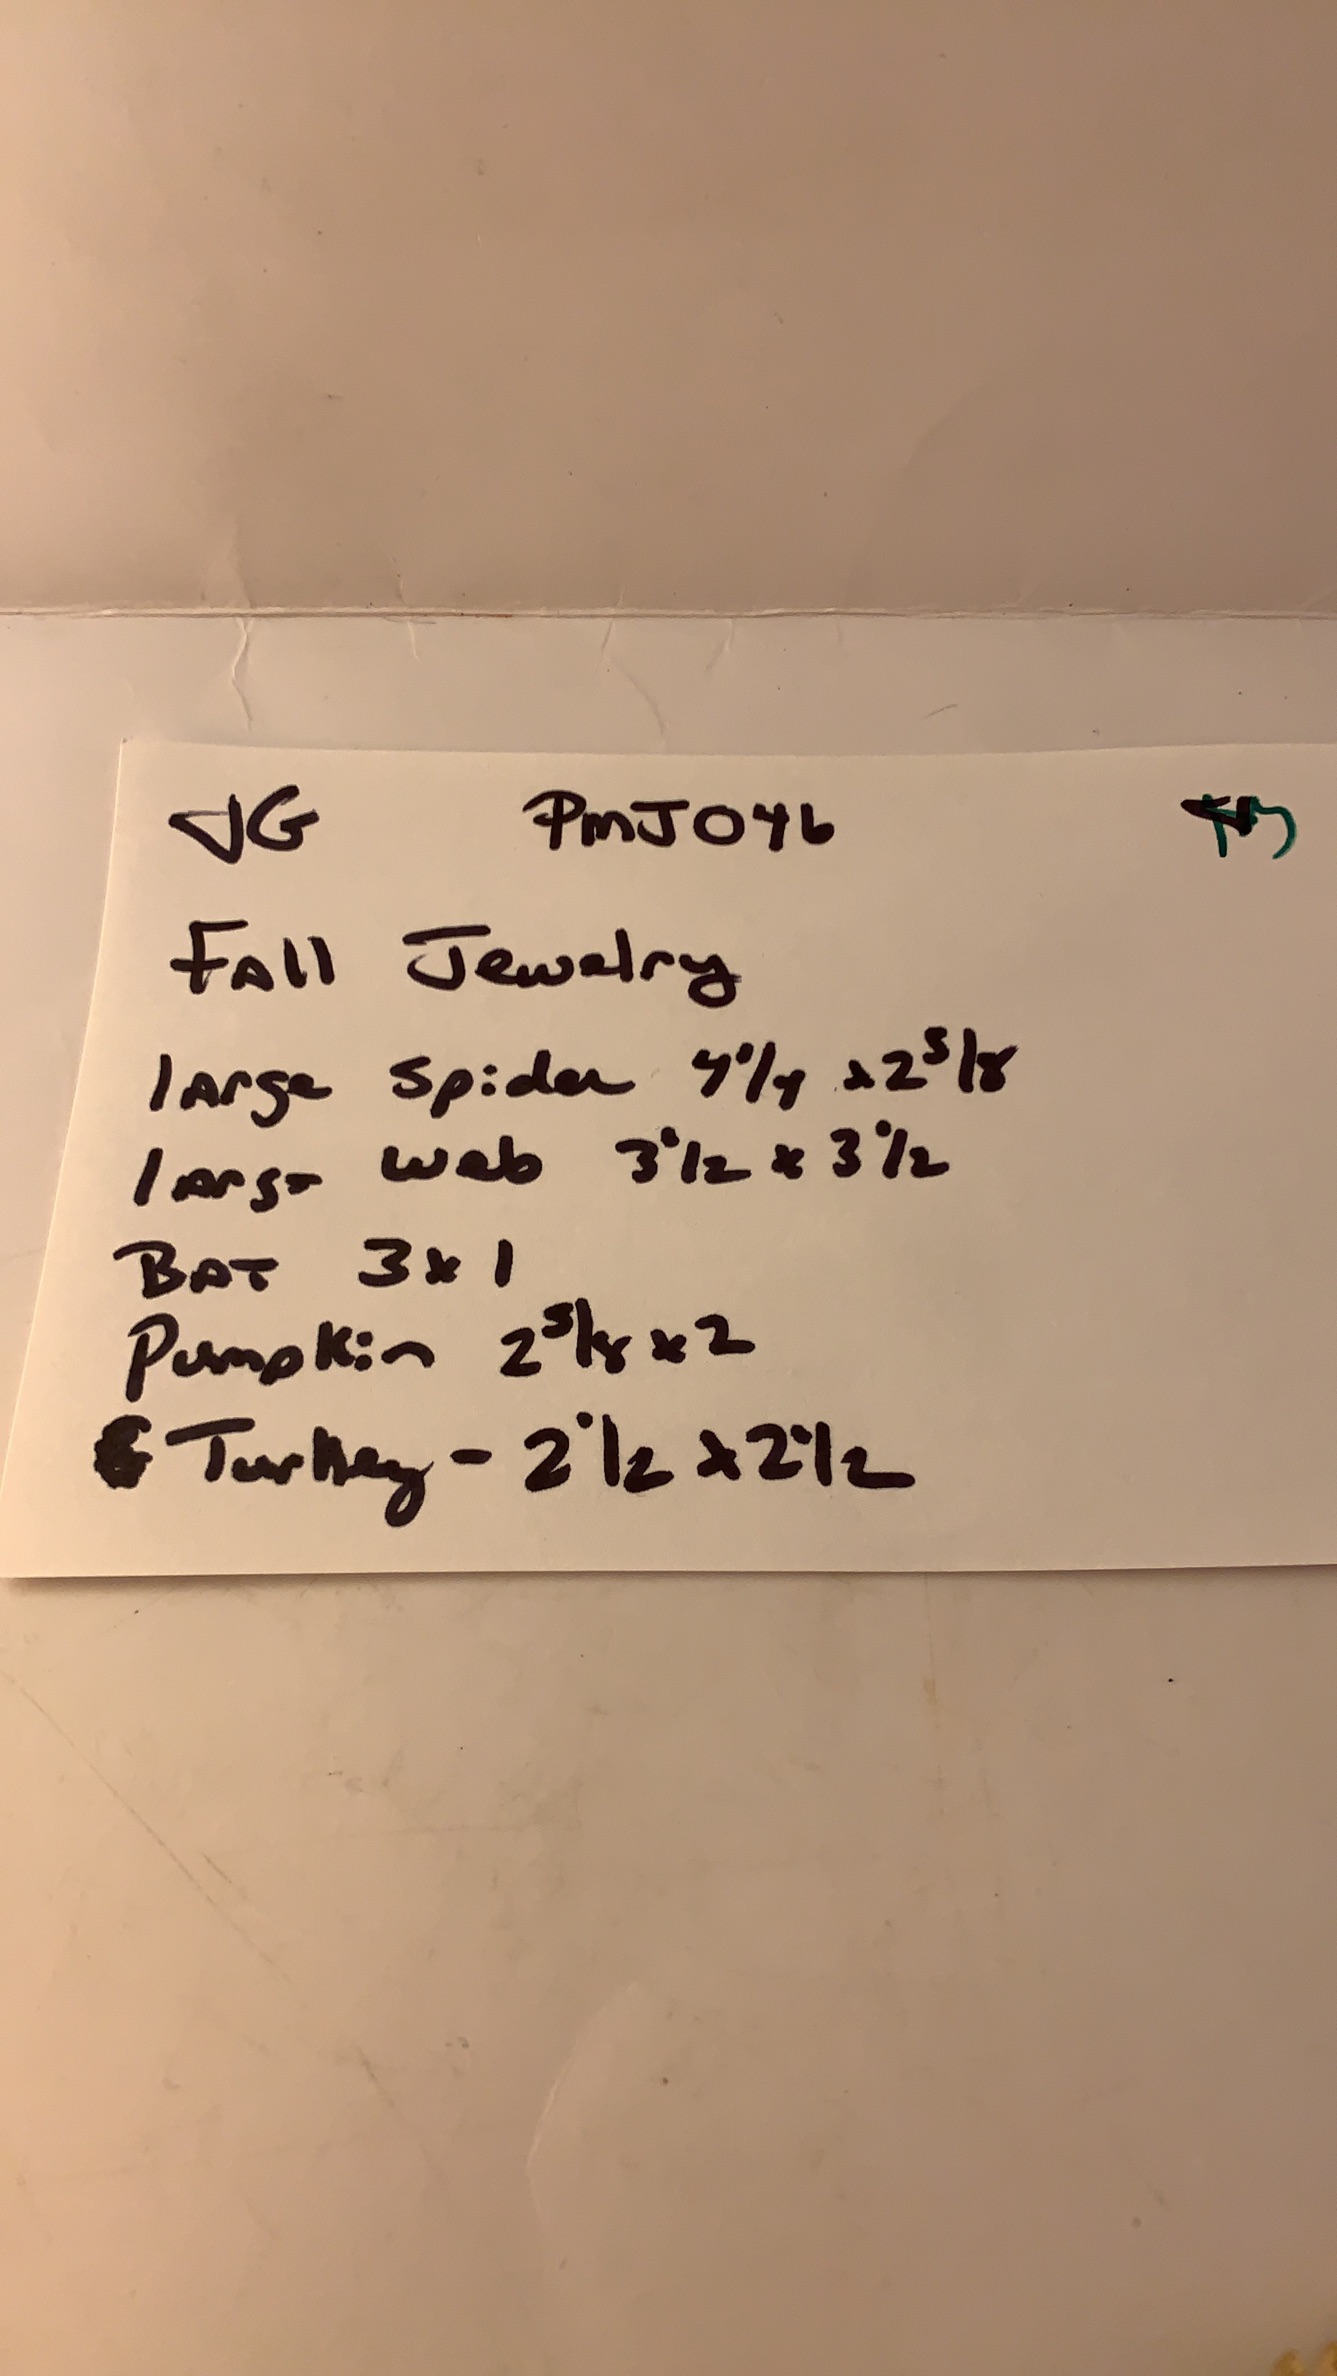 JG PMJ046
Fall Jewelry
large spider 4 1/4 x 2 5/8
large web 3 1/2 x 3 1/2
BAT 3 x 1
Pumpkin 2 5/8 x 2
Turkey - 2 1/2 x 2 1/2